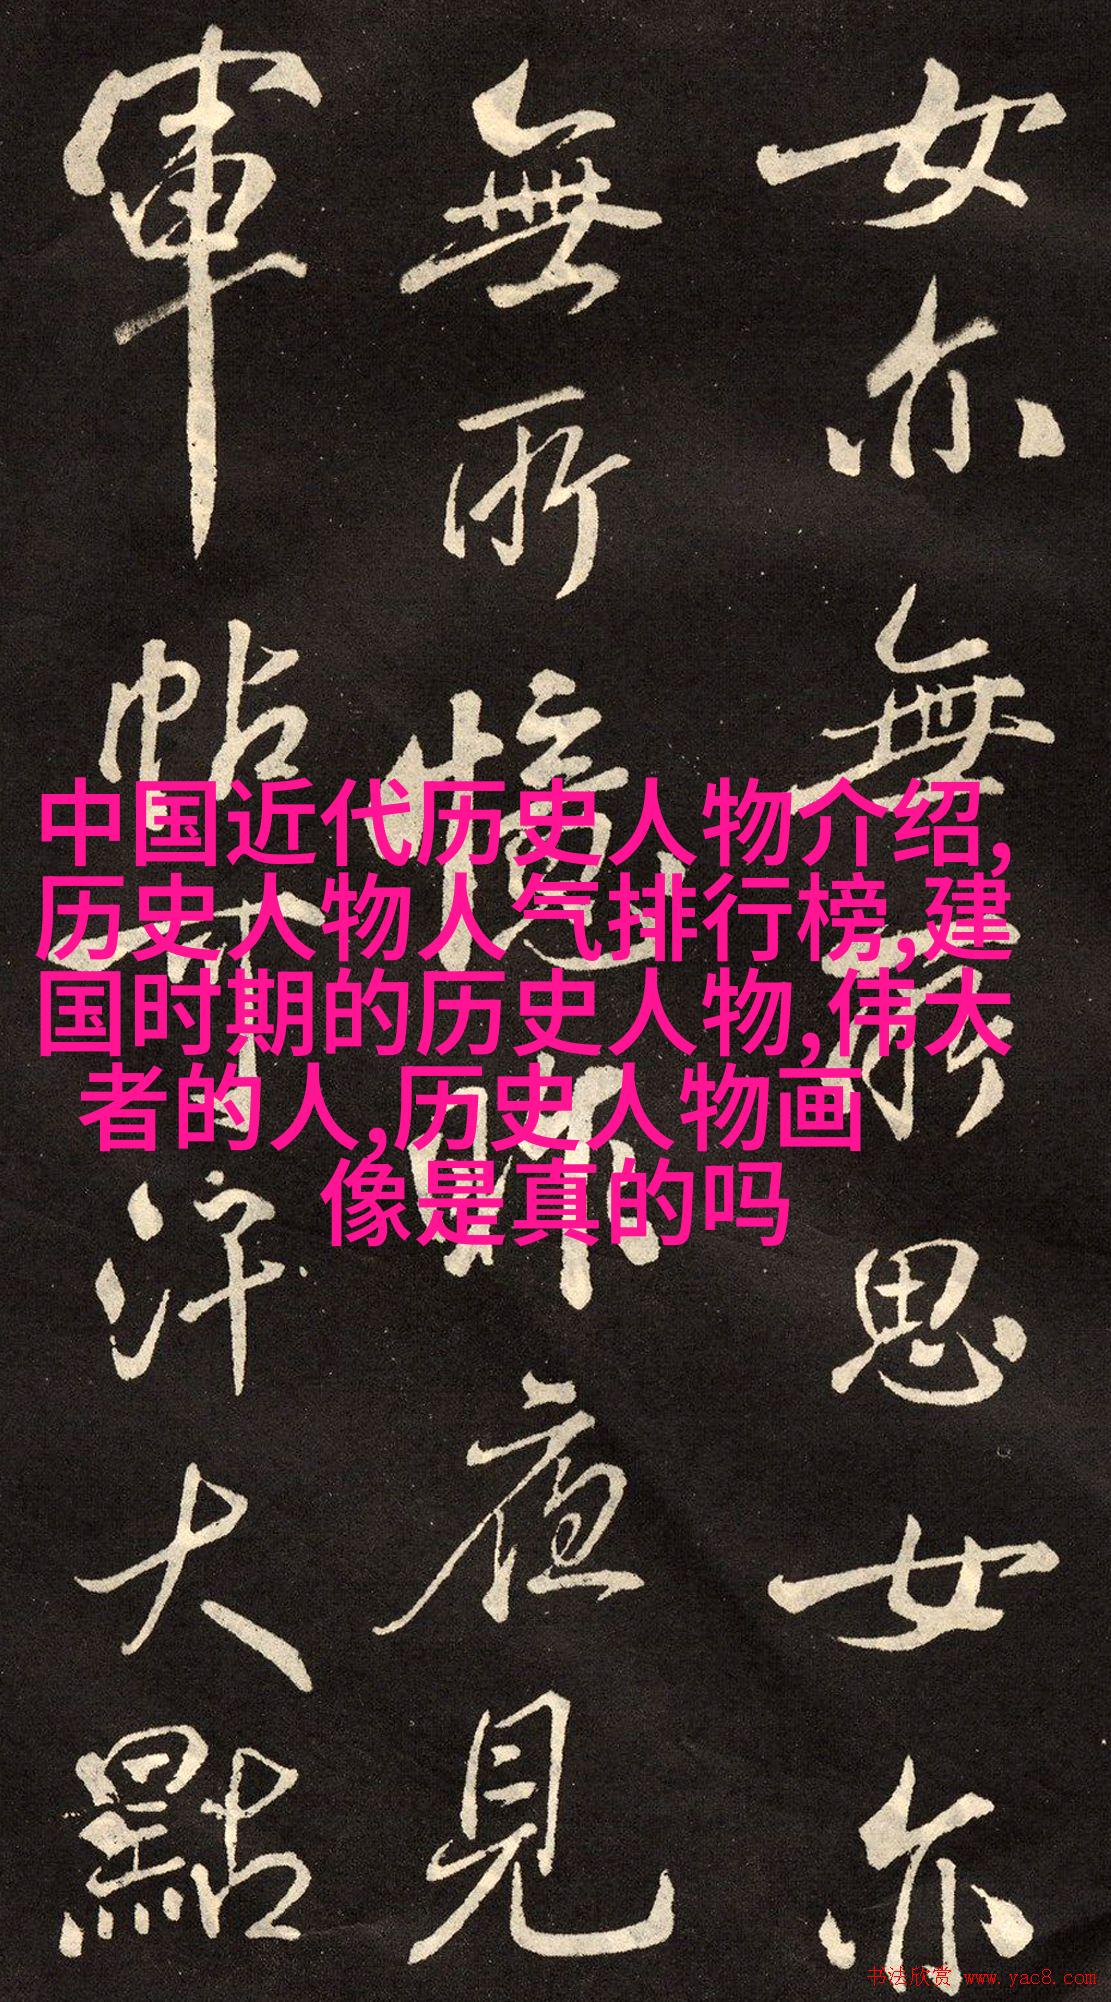 女亦無所思女亦
無所憶昨夜見
軍帖可汗大點
中国近代历史人物介绍,
历史人物人气排行榜,建
国时期的历史人物,伟大
者的人,历史人物画
像是真的吗
书法欣赏 www.yac8.com